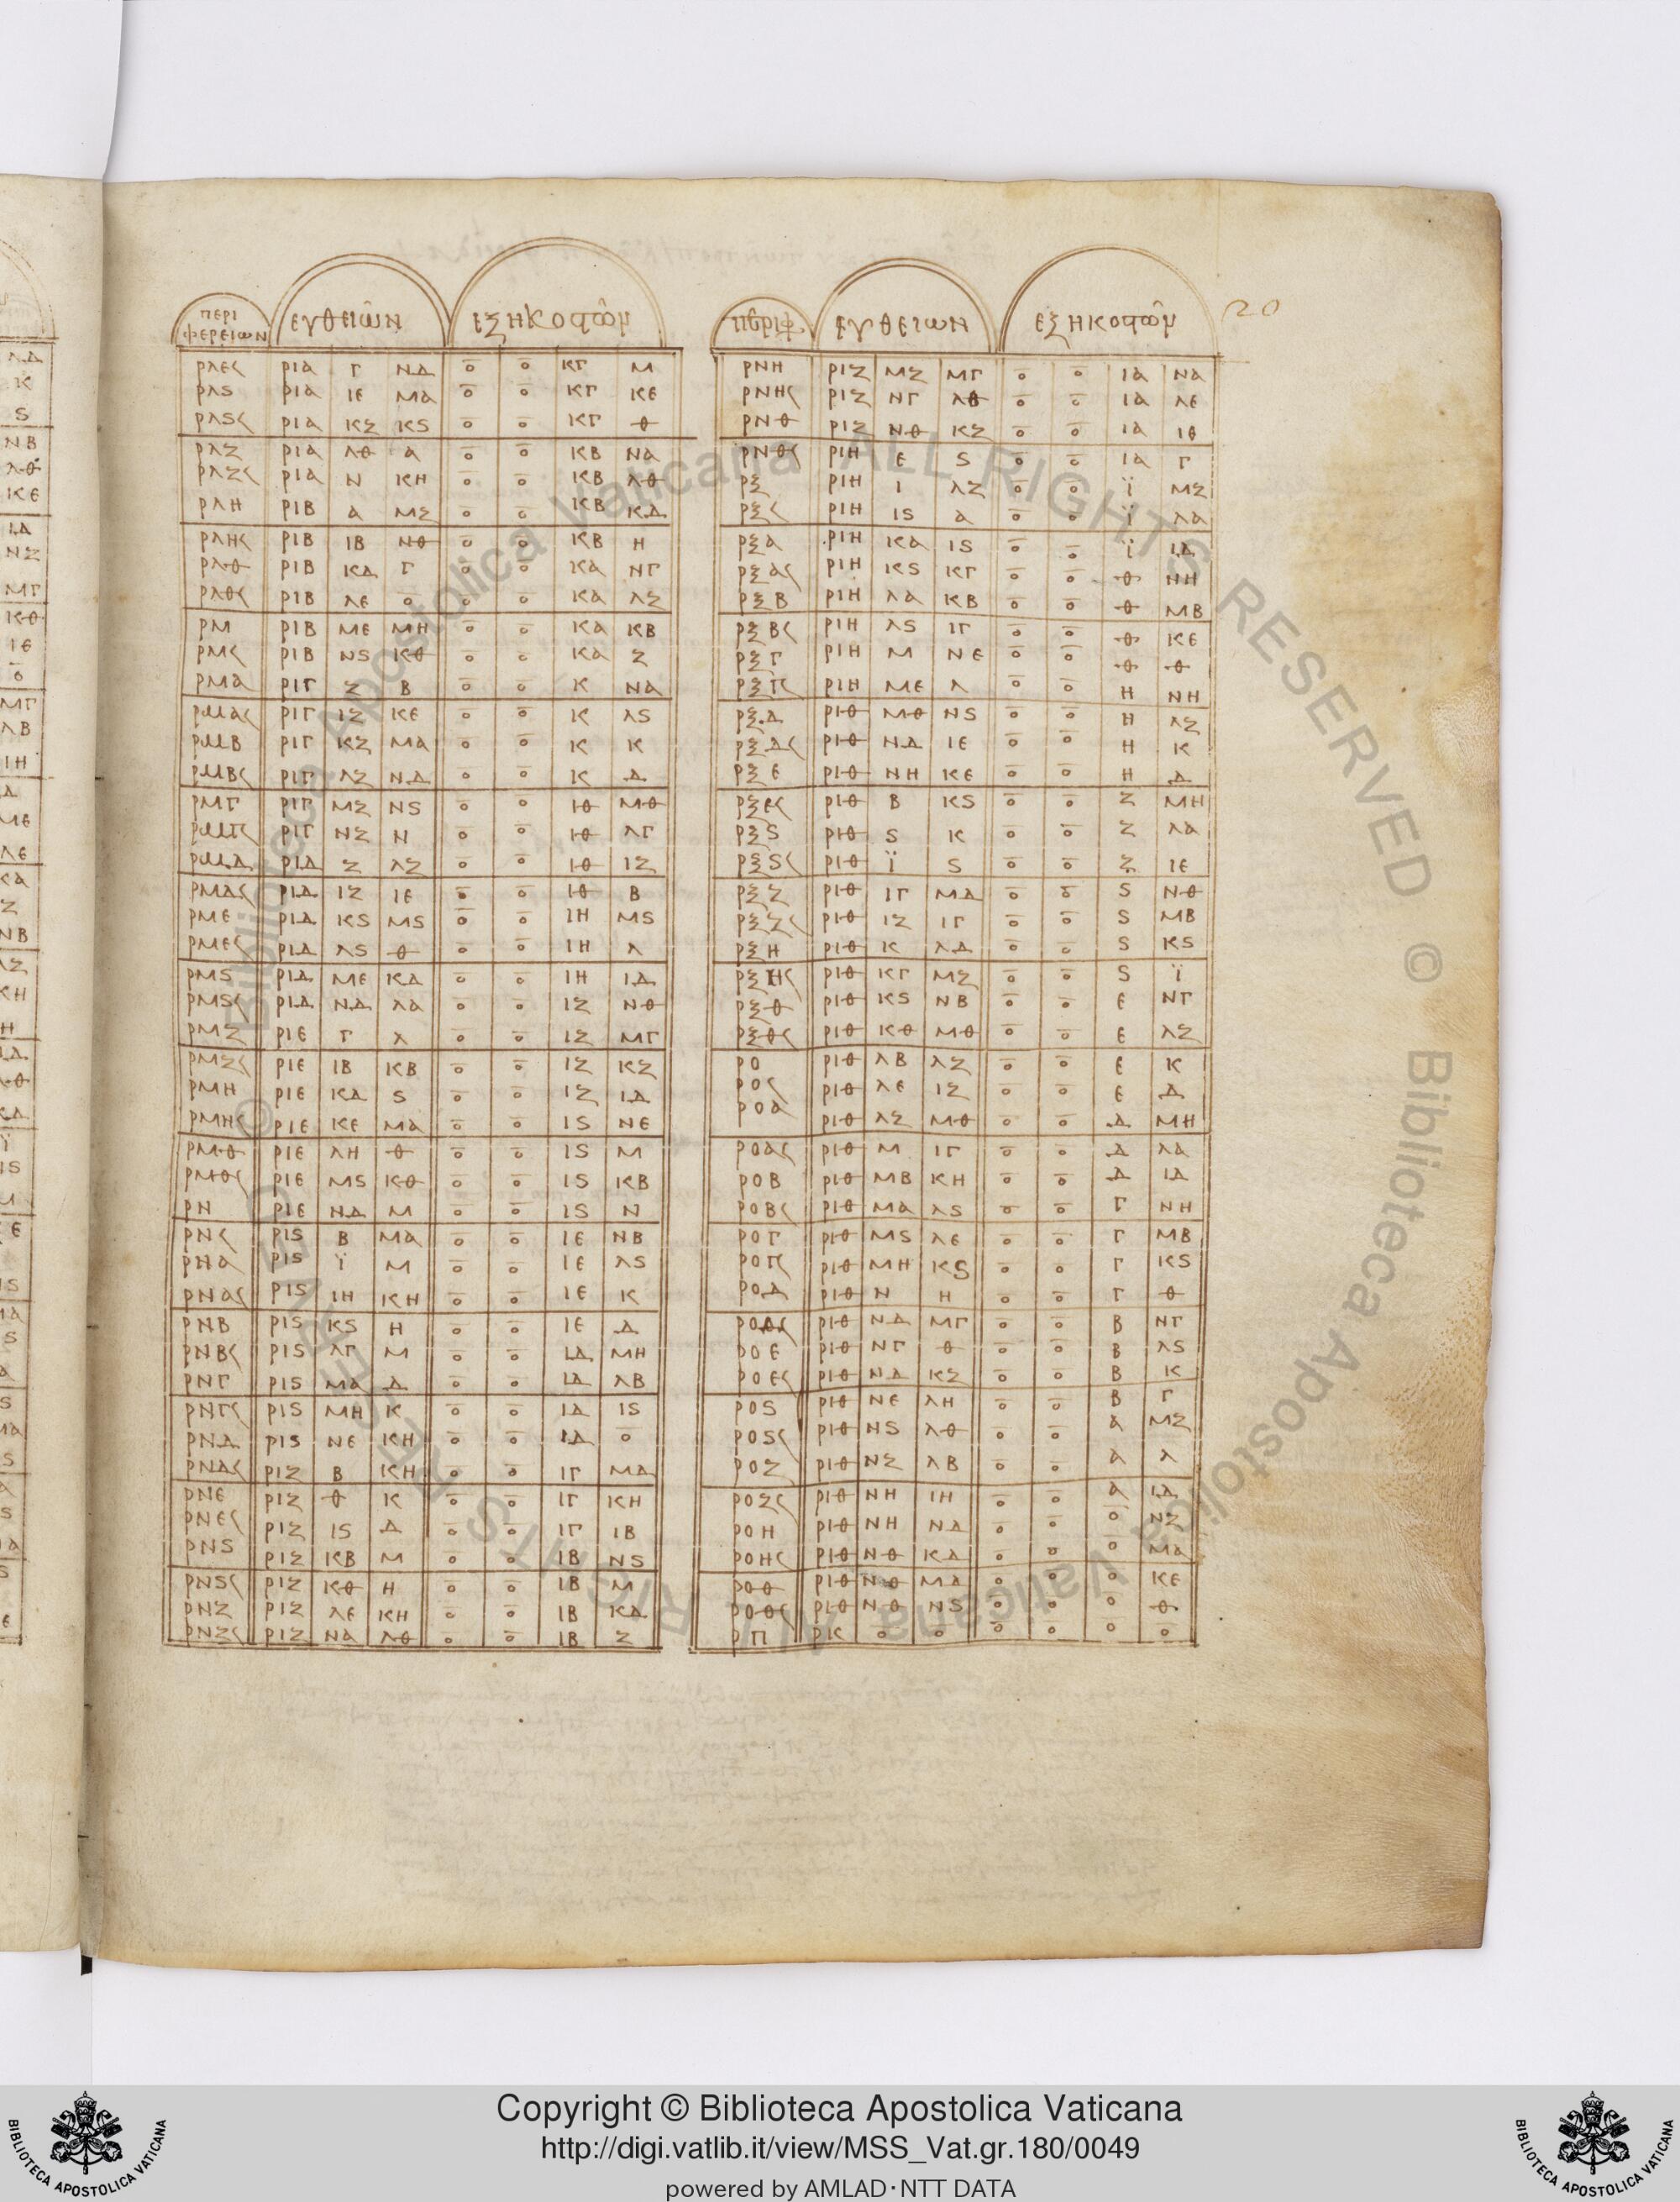 20
ΠΕΡΙ ΦΕΡΕΙΩΝ ΕΥΘΕΙῶΝ ΕΞΗΚΟϲΤῶΝ
ΡΛΕς ΡΙΑ Γ ΝΔ ο̄ ο̄ ΚΓ Μ
ΡΛϚ ΡΙΑ ΙΕ ΜΑ ο̄ ο̄ ΚΓ ΚΕ
ΡΛϚς ΡΙΑ ΚΖ ΚϚ ο̄ ο̄ ΚΓ Θ
ΡΛΖ ΡΙΑ ΛΘ Α ο̄ ο̄ ΚΒ ΝΑ
ΡΛΖς ΡΙΑ Ν ΚΗ ο̄ ο̄ ΚΒ ΛΘ
ΡΛΗ ΡΙΒ Α ΜΖ ο̄ ο̄ ΚΒ ΚΔ
ΡΛΗς ΡΙΒ ΙΒ ΝΘ ο̄ ο̄ ΚΒ Η
ΡΛΘ ΡΙΒ ΚΔ Γ ο̄ ο̄ ΚΑ ΝΓ
ΡΛΘς ΡΙΒ ΛΕ ο̄ ο̄ ο̄ ΚΑ ΛΖ
ΡΜ ΡΙΒ ΜΕ ΜΗ ο̄ ο̄ ΚΑ ΚΒ
ΡΜς ΡΙΒ ΝϚ ΚΘ ο̄ ο̄ ΚΑ Ζ
ΡΜΑ ΡΙΓ Ζ Β ο̄ ο̄ Κ ΝΑ
ΡΜΑς ΡΙΓ ΙΖ ΚΕ ο̄ ο̄ Κ ΛϚ
ΡΜΒ ΡΙΓ ΚΖ ΜΑ ο̄ ο̄ Κ Κ
ΡΜΒς ΡΙΓ ΛΖ ΝΔ ο̄ ο̄ Κ Δ
ΡΜΓ ΡΙΓ ΜΖ ΝϚ ο̄ ο̄ ΙΘ ΜΘ
ΡΜΓς ΡΙΓ ΝΖ Ν ο̄ ο̄ ΙΘ ΛΓ
ΡΜΔ ΡΙΔ Ζ ΛΖ ο̄ ο̄ ΙΘ ΙΖ
ΡΜΔς ΡΙΔ ΙΖ ΙΕ ο̄ ο̄ ΙΘ Β
ΡΜΕ ΡΙΔ ΚϚ ΜϚ ο̄ ο̄ ΙΗ ΜϚ
ΡΜΕς ΡΙΔ ΛϚ Θ ο̄ ο̄ ΙΗ Λ
ΡΜϚ ΡΙΔ ΜΕ ΚΔ ο̄ ο̄ ΙΗ ΙΔ
ΡΜϚς ΡΙΔ ΝΔ ΛΑ ο̄ ο̄ ΙΖ ΝΘ
ΡΜΖ ΡΙΕ Γ Λ ο̄ ο̄ ΙΖ ΜΓ
ΡΜΖς ΡΙΕ ΙΒ ΚΒ ο̄ ο̄ ΙΖ ΚΖ
ΡΜΗ ΡΙΕ ΚΑ Ϛ ο̄ ο̄ ΙΖ ΙΑ
ΡΜΗς ΡΙΕ ΚΕ ΜΑ ο̄ ο̄ ΙϚ ΝΕ
ΡΜΘ ΡΙΕ ΛΗ Θ ο̄ ο̄ ΙϚ Μ
ΡΜΘς ΡΙΕ ΜϚ ΚΘ ο̄ ο̄ ΙϚ ΚΒ
ΡΝ ΡΙΕ ΝΔ Μ ο̄ ο̄ ΙϚ Ν
ΡΝς ΡΙϚ Β ΜΑ ο̄ ο̄ ΙΕ ΝΒ
ΡΝΑ ΡΙϚ Ϊ Μ ο̄ ο̄ ΙΕ ΛϚ
ΡΝΑς ΡΙϚ ΙΗ ΚΗ ο̄ ο̄ ΙΕ Κ
ΡΝΒ ΡΙϚ ΚϚ Η ο̄ ο̄ ΙΕ Δ
ΡΝΒς ΡΙϚ ΛΓ Μ ο̄ ο̄ ΙΔ ΜΗ
ΡΝΓ ΡΙϚ ΜΑ Δ ο̄ ο̄ ΙΔ ΛΒ
ΡΝΓς ΡΙϚ ΜΗ Κ ο̄ ο̄ ΙΔ ΙϚ
ΡΝΔ ΡΙϚ ΝΕ ΚΗ ο̄ ο̄ ΙΔ ο̄
ΡΝΔς ΡΙΖ Β ΚΗ ο̄ ο̄ ΙΓ ΜΔ
ΡΝΕ ΡΙΖ Θ Κ ο̄ ο̄ ΙΓ ΚΗ
ΡΝΕς ΡΙΖ ΙϚ Δ ο̄ ο̄ ΙΓ ΙΒ
ΡΝϚ ΡΙΖ ΚΒ Μ ο̄ ο̄ ΙΒ ΝϚ
ΡΝϚς ΡΙΖ ΚΘ Η ο̄ ο̄ ΙΒ Μ
ΡΝΖ ΡΙΖ ΛΕ ΚΗ ο̄ ο̄ ΙΒ ΚΔ
ΡΝΖς ΡΙΖ ΝΑ ΛΘ ο̄ ο̄ ΙΒ Ζ
ΠΕΡΙΦ ΕΥΘΕΙΩΝ ΕΞΗΚΟϲΤῶΝ
ΡΝΗ ΡΙΖ ΜΖ ΜΓ ο̄ ο̄ ΙΑ ΝΑ
ΡΝΗς ΡΙΖ ΝΓ ΛΘ ο̄ ο̄ ΙΑ ΛΕ
ΡΝΘ ΡΙΖ ΝΘ ΚΖ ο̄ ο̄ ΙΑ ΙΘ
ΡΝΘς ΡΙΗ Ε Ϛ ο̄ ο̄ ΙΑ Γ
ΡΞ ΡΙΗ Ι ΛΖ ο̄ ο̄ Ϊ ΜΖ
ΡΞς ΡΙΗ ΙϚ Α ο̄ ο̄ Ϊ ΛΑ
ΡΞΑ ΡΙΗ ΚΑ ΙϚ ο̄ ο̄ Ϊ ΙΔ
ΡΞΑς ΡΙΗ ΚϚ ΚΓ ο̄ ο̄ Θ ΝΗ
ΡΞΒ ΡΙΗ ΛΑ ΚΒ ο̄ ο̄ Θ ΜΒ
ΡΞΒς ΡΙΗ ΛϚ ΙΓ ο̄ ο̄ Θ ΚΕ
ΡΞΓ ΡΙΗ Μ ΝΕ ο̄ ο̄ Θ Θ
ΡΞΓς ΡΙΗ ΜΕ Λ ο̄ ο̄ Η ΝΗ
ΡΞΔ ΡΙΘ ΜΘ ΝϚ ο̄ ο̄ Η ΛΖ
ΡΞΔς ΡΙΘ ΝΔ ΙΕ ο̄ ο̄ Η Κ
ΡΞΕ ΡΙΘ ΝΗ ΚΕ ο̄ ο̄ Η Δ
ΡΞΕς ΡΙΘ Β ΚϚ ο̄ ο̄ Ζ ΜΗ
ΡΞϚ ΡΙΘ Ϛ Κ ο̄ ο̄ Ζ ΛΑ
ΡΞϚς ΡΙΘ Ϊ Ϛ ο̄ ο̄ Ζ ΙΕ
ΡΞΖ ΡΙΘ ΙΓ ΜΔ ο̄ ο̄ Ϛ ΝΘ
ΡΞΖς ΡΙΘ ΙΖ ΙΓ ο̄ ο̄ Ϛ ΜΒ
ΡΞΗ ΡΙΘ Κ ΛΔ ο̄ ο̄ Ϛ ΚϚ
ΡΞΗς ΡΙΘ ΚΓ ΜΖ ο̄ ο̄ Ϛ Ϊ
ΡΞΘ ΡΙΘ ΚϚ ΝΒ ο̄ ο̄ Ε ΝΓ
ΡΞΘς ΡΙΘ ΚΘ ΜΘ ο̄ ο̄ Ε ΛΖ
ΡΟ ΡΙΘ ΛΒ ΛΖ ο̄ ο̄ Ε Κ
ΡΟς ΡΙΘ ΛΕ ΙΖ ο̄ ο̄ Ε Δ
ΡΟΑ ΡΙΘ ΛΖ ΜΘ ο̄ ο̄ Δ ΜΗ
ΡΟΑς ΡΙΘ Μ ΙΓ ο̄ ο̄ Δ ΛΑ
ΡΟΒ ΡΙΘ ΜΒ ΚΗ ο̄ ο̄ Δ ΙΔ
ΡΟΒς ΡΙΘ ΜΑ ΛϚ ο̄ ο̄ Γ ΝΗ
ΡΟΓ ΡΙΘ ΜϚ ΛΕ ο̄ ο̄ Γ ΜΒ
ΡΟΓς ΡΙΘ ΜΗ ΚϚ ο̄ ο̄ Γ ΚϚ
ΡΟΔ ΡΙΘ Ν Η ο̄ ο̄ Γ Θ
ΡΟΔς ΡΙΘ ΝΔ ΜΓ ο̄ ο̄ Β ΝΓ
ΡΟΕ ΡΙΘ ΝΓ Θ ο̄ ο̄ Β ΛϚ
ΡΟΕς ΡΙΘ ΝΔ ΚΖ ο̄ ο̄ Β Κ
ΡΟϚ ΡΙΘ ΝΕ ΛΗ ο̄ ο̄ Β Γ
ΡΟϚς ΡΙΘ ΝϚ ΛΘ ο̄ ο̄ Α ΜΖ
ΡΟΖ ΡΙΘ ΝΖ ΛΒ ο̄ ο̄ Α Λ
ΡΟΖς ΡΙΘ ΝΗ ΙΗ ο̄ ο̄ Α ΙΔ
ΡΟΗ ΡΙΘ ΝΗ ΝΔ ο̄ ο̄ ο̄ ΝΖ
ΡΟΗς ΡΙΘ ΝΘ ΚΔ ο̄ ο̄ ο̄ ΜΑ
ΡΟΘ ΡΙΘ ΝΘ ΜΔ ο̄ ο̄ ο̄ ΚΕ
ΡΟΘς ΡΙΘ ΝΘ ΝϚ ο̄ ο̄ ο̄ Θ
ΡΠ ΡΚ ο̄ ο̄ ο̄ ο̄ ο̄ ο̄
© Biblioteca Apostolica Vaticana ALL RIGHTS RESERVED © Biblioteca Apostolica Vaticana ALL RIGHTS RESERVED
Copyright © Biblioteca Apostolica Vaticana
http://digi.vatlib.it/view/MSS_Vat.gr.180/0049
powered by AMLAD·NTT DATA
BIBLIOTECA APOSTOLICA VATICANA
BIBLIOTECA APOSTOLICA VATICANA